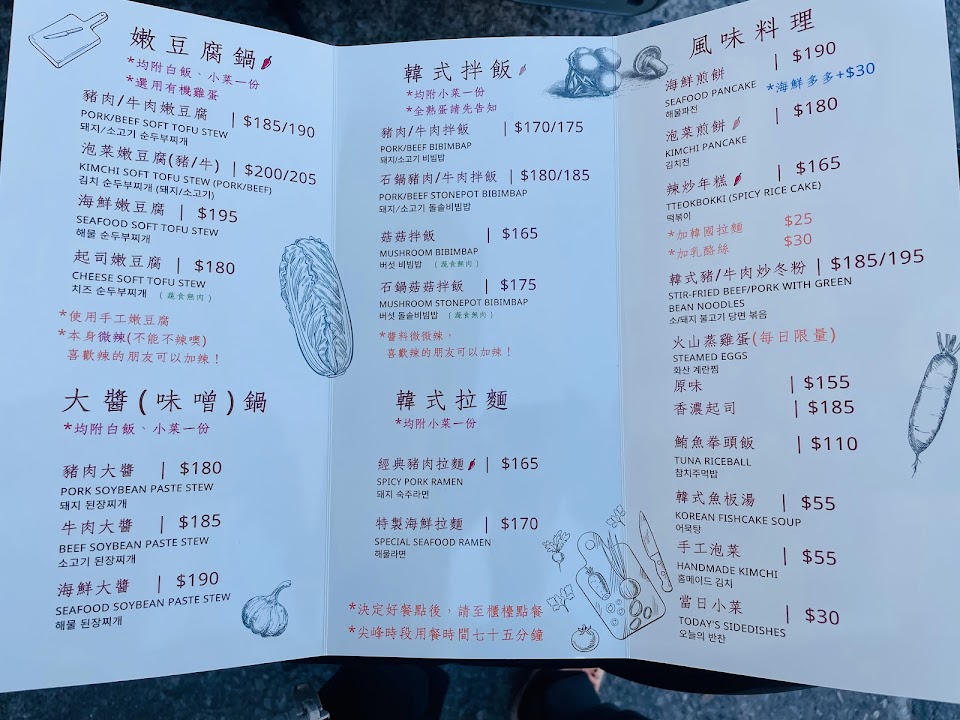 嫩豆腐鍋
*均附白飯、小菜一份
*選用有機雞蛋
豬肉/牛肉嫩豆腐 | $185/190
PORK/BEEF SOFT TOFU STEW
돼지/소고기 순두부찌개
泡菜嫩豆腐(豬/牛) | $200/205
KIMCHI SOFT TOFU STEW (PORK/BEEF)
김치 순두부찌개 (돼지/소고기)
海鮮嫩豆腐 | $195
SEAFOOD SOFT TOFU STEW
해물 순두부찌개
起司嫩豆腐 | $180
CHEESE SOFT TOFU STEW
치즈 순두부찌개 (蔬食無肉)
*使用手工嫩豆腐
*本身微辣(不能不辣噢)
喜歡辣的朋友可以加辣!
大醬(味噌)鍋
*均附白飯、小菜一份
豬肉大醬 | $180
PORK SOYBEAN PASTE STEW
돼지 된장찌개
牛肉大醬 | $185
BEEF SOYBEAN PASTE STEW
소고기 된장찌개
海鮮大醬 | $190
SEAFOOD SOYBEAN PASTE STEW
해물 된장찌개
韓式拌飯
*均附小菜一份
*全熟蛋請先告知
豬肉/牛肉拌飯 | $170/175
PORK/BEEF BIBIMBAP
돼지/소고기 비빔밥
石鍋豬肉/牛肉拌飯 | $180/185
PORK/BEEF STONEPOT BIBIMBAP
돼지/소고기 돌솥비빔밥
菇菇拌飯 | $165
MUSHROOM BIBIMBAP
버섯 비빔밥 (蔬食無肉)
石鍋菇菇拌飯 | $175
MUSHROOM STONEPOT BIBIMBAP
버섯 돌솥비빔밥 (蔬食無肉)
*醬料微微辣,
喜歡辣的朋友可以加辣!
韓式拉麵
*均附小菜一份
經典豬肉拉麵 | $165
SPICY PORK RAMEN
돼지 숙주라면
特製海鮮拉麵 | $170
SPECIAL SEAFOOD RAMEN
해물라면
*決定好餐點後,請至櫃檯點餐
*尖峰時段用餐時間七十五分鐘
風味料理
海鮮煎餅 | $190
SEAFOOD PANCAKE *海鮮多多+$30
해물파전
泡菜煎餅 | $180
KIMCHI PANCAKE
김치전
辣炒年糕 | $165
TTEOKBOKKI (SPICY RICE CAKE)
떡볶이
*加韓國拉麵 $25
*加乳酪絲 $30
韓式豬/牛肉炒冬粉 | $185/195
STIR-FRIED BEEF/PORK WITH GREEN
BEAN NOODLES
소/돼지 불고기 당면 볶음
火山蒸雞蛋(每日限量)
STEAMED EGGS
화산 계란찜
原味 | $155
香濃起司 | $185
鮪魚拳頭飯 | $110
TUNA RICEBALL
참치주먹밥
韓式魚板湯 | $55
KOREAN FISHCAKE SOUP
어묵탕
手工泡菜 | $55
HANDMADE KIMCHI
홈메이드 김치
當日小菜 | $30
TODAY'S SIDEDISHES
오늘의 반찬